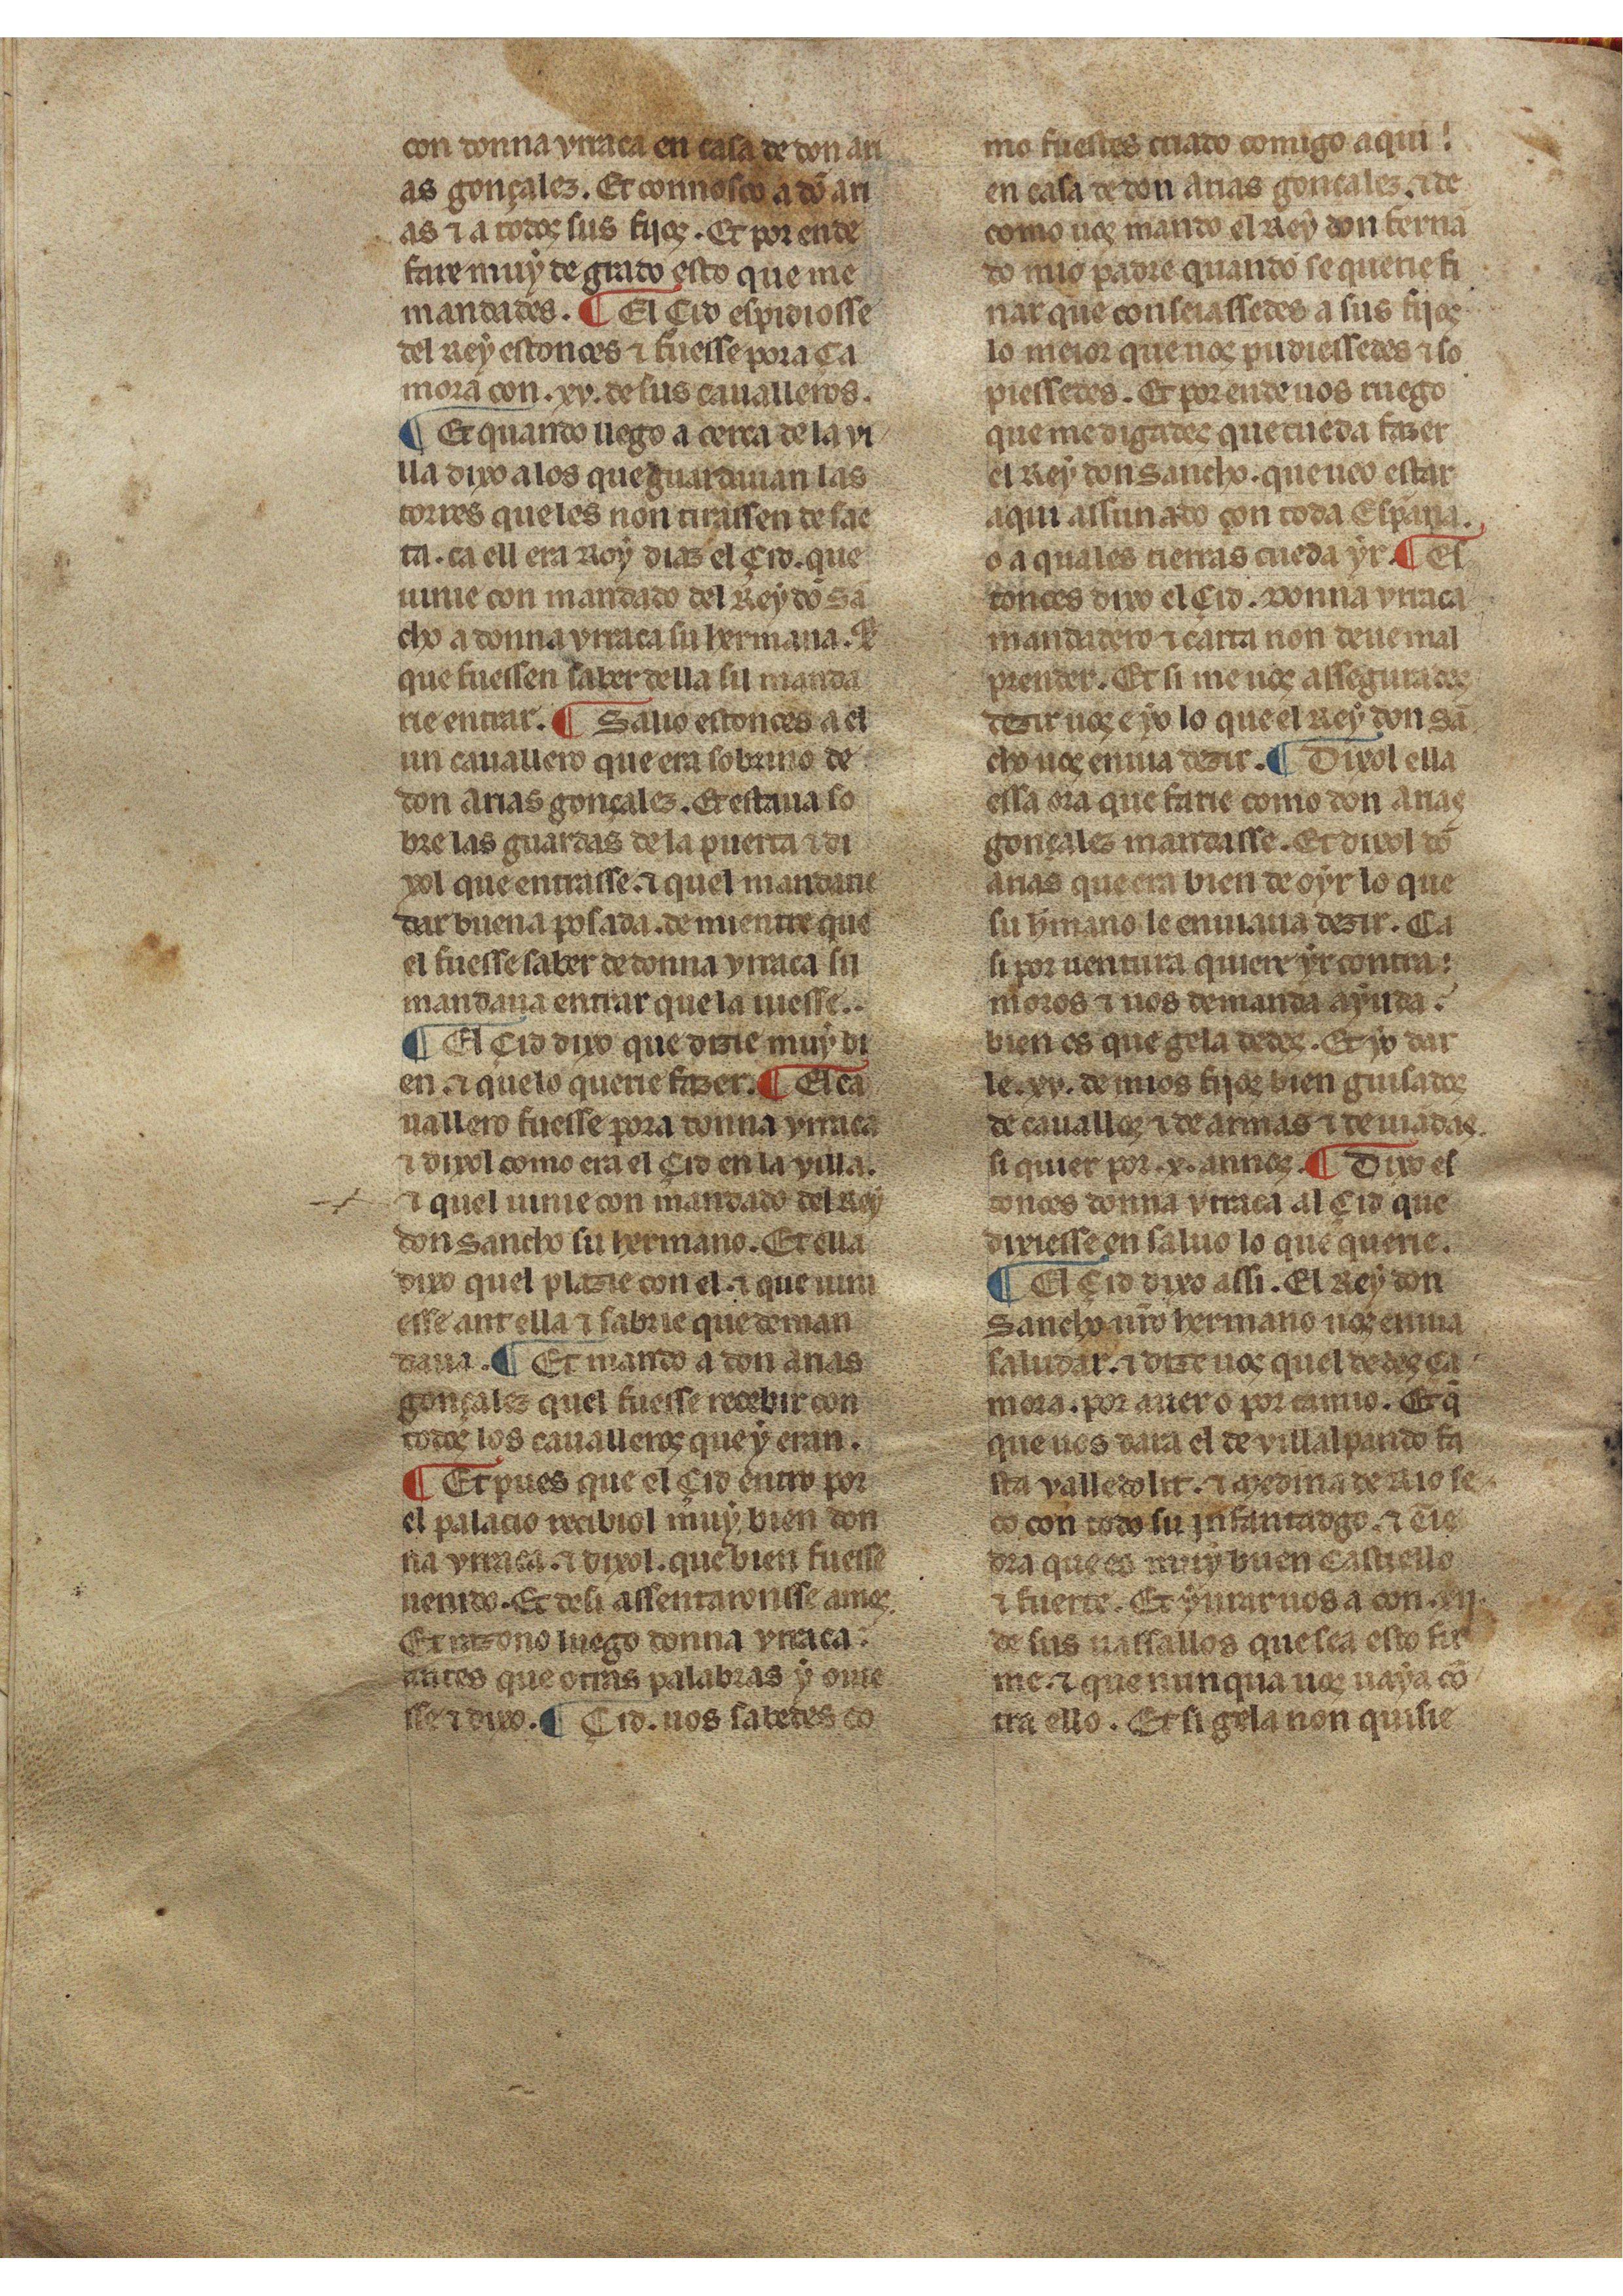 con donna vrraca en casa de don ari
as gonçalez. Et connosco a dõ ari
as ⁊ a todos sus fijos. Et por ende
fare muẏ de grado esto que me
mandades. ¶ El Çid espidiosse
del Reẏ estonces ⁊ fuesse pora Ça
mora con .xv. de sus caualleros.
¶ Et quando llego a cerca de la vi
lla dixo a los que guardauan las
torres que les non tirassen de sae
ta. ca ell era Roẏ diaz el Çid. que
uinie con mandado del Reẏ dõ Sã
cho a donna vrraca su hermana. ⁊
que fuessen saber della sil manda
rie entrar. ¶ Salio estonces a el
un cauallero que era sobrino de
don Arias gonçalez. Et estaua so
bre las guardas de la puerta ⁊ di
xol que entrasse. ⁊ quel mandarie
dar buena posada. de mientre que
el fuesse saber de donna vrraca sil
mandaua entrar que la uiesse..
¶ El Çid dixo que dizie muẏ bi
en. ⁊ que lo querie fazer. ¶ El ca
uallero fuesse pora donna vrraca
⁊ dixol como era el Çid en la villa.
⁊ quel uinie con mandado del Reẏ
don Sancho su hermano. Et ella
dixo quel plazie con el. ⁊ que uini
esse ant ella ⁊ sabrie que deman
daua. ¶ Et mando a don arias
gonçalez quel fuesse recebir con
todos los caualleros que ẏ eran.
¶ Et pues que el Çid entro por
el palacio recibiol muẏ bien don
na vrraca. ⁊ dixol. que bien fuesse
uenido. Et desi assentaronsse amos.
Et razono luego donna vrraca.
antes que otras palabras ẏ ouie
sse ⁊ dixo. ¶ Çid. uos sabedes co
mo fuestes criado comigo aqui!
en casa de don Arias gonçalez. ⁊ de
como uos mando el Reẏ don ferná
do mio padre quando se querie fi
nar que conseiassedes a sus fijos
lo meior que uos pudiessedes ⁊ so
piessedes. Et por ende uos ruego
que me digades que cueda fazer
el Reẏ don Sancho. que ueo estar
aqui assunado con toda Espãna.
o a quales tierras cueda ẏr. ¶ Es
tonces dixo el Çid. Donna vrraca
mandadero ⁊ carta non deue mal
prender. Et si me uos assegurades
dezir uos e ẏo lo que el Reẏ don Sã
cho uos enuia dezir. ¶ Dixol ella
essa ora que farie como don Arias
gonçalez mandasse. Et dixol dõ
arias que era bien de oẏr lo que
su hmano le enuiaua dezir. Ca
si por uentura quiere ẏr contra:
moros ⁊ uos demanda aẏuda.
bien es que gela dedes. Et ẏo dar
le .xv. de mios fijos bien guisados
de cauallos ⁊ de armas ⁊ de uiadas.
si quier por .x. annos. ¶ Dixo es
tonces donna vrraca al Çid que
dixiesse en saluo lo que querie.
¶ El Çid dixo assi. El Reẏ don
Sancho uro hermano uos enuia
saludar. ⁊ dize uos quel dedes Ça
mora. por auer o por camio. Et q̃
que uos dara el de villalpando fa
sta valledolit. ⁊ Medina de Rio se
co con todo su infantadgo. ⁊ Tie
dra que es muẏ buen Castiello
⁊ fuerte. Et ẏurar uos a con .xij.
de sus uassallos que sea esto fir
me. ⁊ que nunqua uos uaẏa cõ
tra ello. Et si gela non quisie